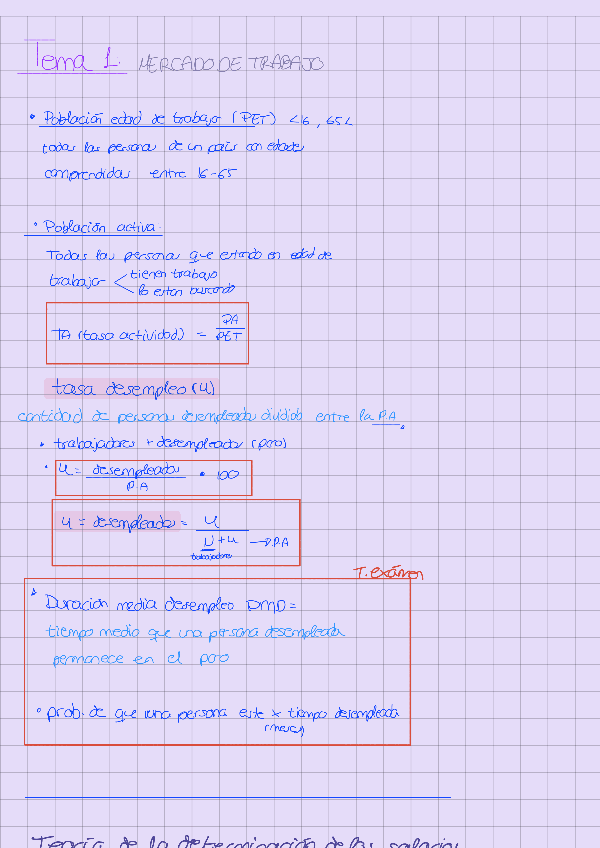 Tema 1. MERCADO DE TRABAJO
• Población edad de trabajo (PET) <16, 65<
todas las personas de un país con edades
comprendidas entre 16-65
• Población activa:
Todas las personas que estando en edad de
trabajar < tienen trabajo
lo están buscando
TA (tasa actividad) = PA / PET
tasa desempleo (u)
cantidad de personas desempleadas dividido entre la P.A.
• trabajadores + desempleados (paro)
• u = desempleados / P.A • 100
u = desempleados = u / N + u → P.A
trabajadores
T. exámen
Duración media desempleo DMD =
tiempo medio que una persona desempleada
permanece en el paro
• prob. de que una persona este x tiempo desempleada
(meses)
Teoría de la determinación de los salarios